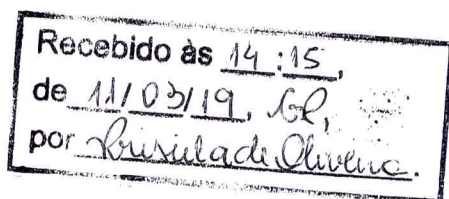 Recebido às 14:15,
de 11/03/19,
por de Oliveira.